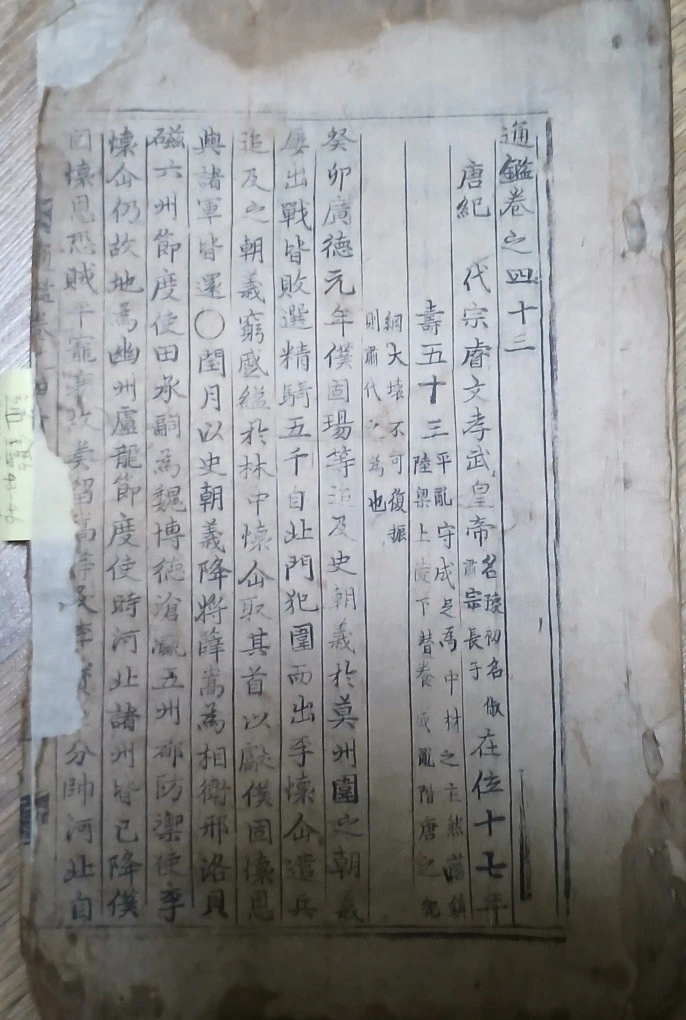 通鑑卷之四十三
唐紀 代宗睿文孝武皇帝 名豫初名俶 肅宗長子 在位十七年
壽五十三 平亂守成足爲中材之主然藩鎭
陸梁上陵下替養成亂階唐之紀
綱大壞不可復振
則肅代之爲也
癸卯廣德元年僕固瑒等追及史朝義於莫州圍之朝義
屢出戰皆敗選精騎五千自北門犯圍而出李懷仙遣兵
追及之朝義窮蹙縊於林中懷仙取其首以獻僕固懷恩
與諸軍皆還〇閏月以史朝義降將薛嵩為相衛邢洺貝
磁六州節度使田承嗣為魏博德滄瀛五州都防禦使李
懷仙仍故地為幽州盧龍節度使時河北諸州皆已降僕
固懷恩恐賊平寵衰故奏留嵩等及李寶 分帥河北自
通鑑卷之四十